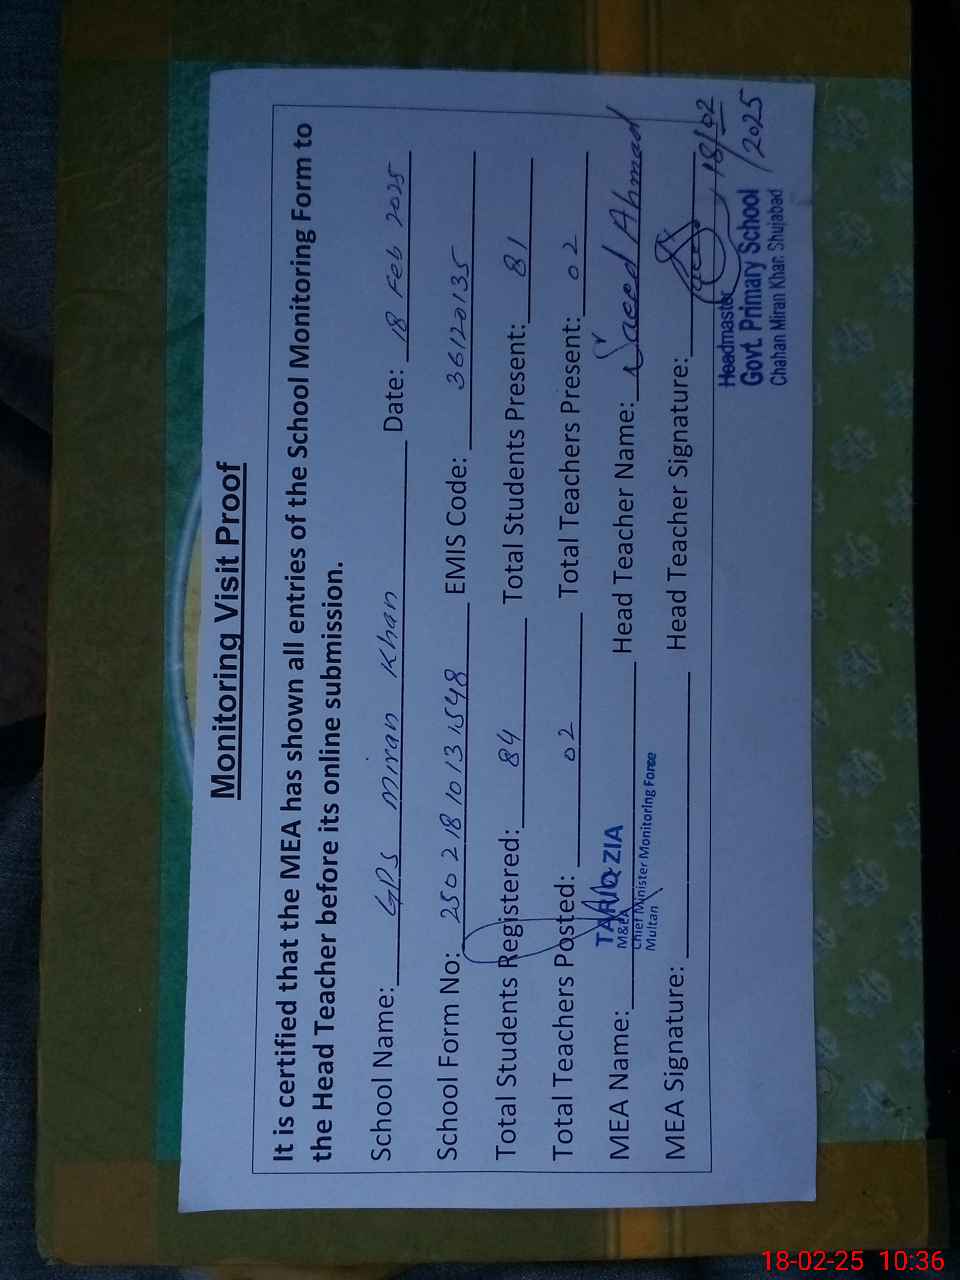 Monitoring Visit Proof
It is certified that the MEA has shown all entries of the School Monitoring Form to
the Head Teacher before its online submission.
School Name: GPS Miran Khan Date: 18 Feb 2025
School Form No: 25021810131548 EMIS Code: 36120135
Total Students Registered: 84 Total Students Present: 81
Total Teachers Posted: 02 Total Teachers Present: 02
MEA Name: TARIQ ZIA Head Teacher Name: Saeed Ahmad
M&EA
Chief Minister Monitoring Force
Multan
MEA Signature: Head Teacher Signature: 18/02
/2025
Headmaster
Govt. Primary School
Chahan Miran Khan Shujabad
18-02-25 10:36